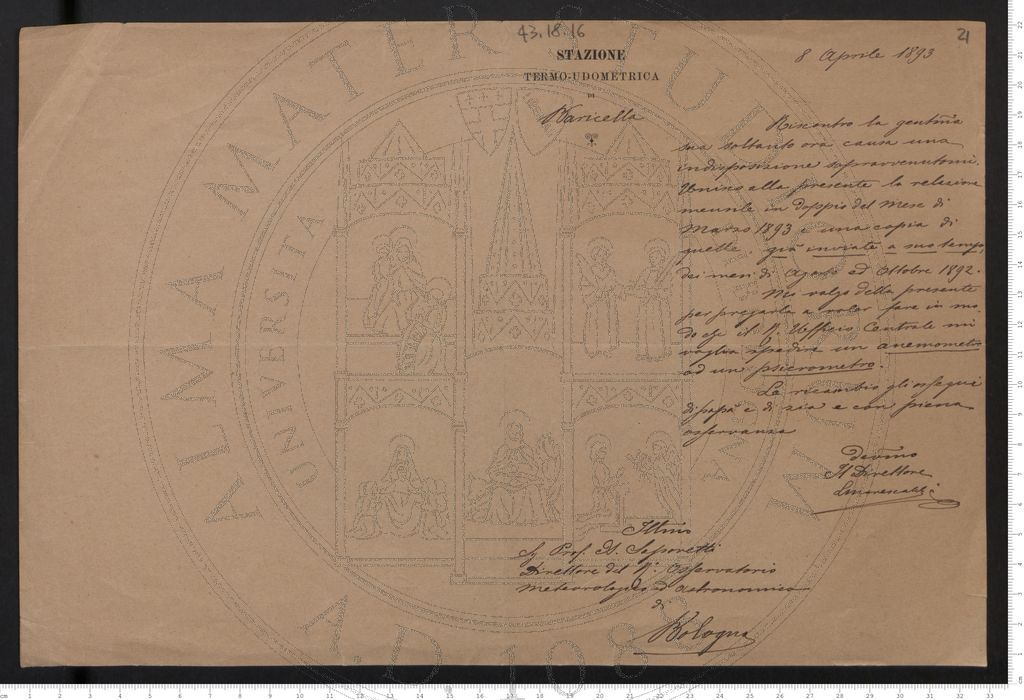 43.18.16
21
STAZIONE
TERMO-UDOMETRICA
DI
Varicella
8 Aprile 1893
Riscontro la gentma
sua soltanto ora causa una
indisposizione sopravvenutami.
Unisco alla presente la relazione
mensile in doppio del mese di
Marzo 1893 e una copia di
quelle già inviate a suo tempo,
dei mesi di Agosto ed Ottobre 1892.
Mi valgo della presente
per pregarla a voler fare in mo
do che il R. Ufficio Centrale mi
voglia spedire un anemometro
ed un psicrometro.
Le ricambio gli ossequi
di papà e di zia e con piena
osservanza
devmo
Il Direttore
Illmo
Sg Prof. A. Saporetti
Direttore del R. Osservatorio
meteorologico ed astronomico
di
Bologna
ALMA MATER STUDIORUM
UNIVERSITÀ
A.D. 1088